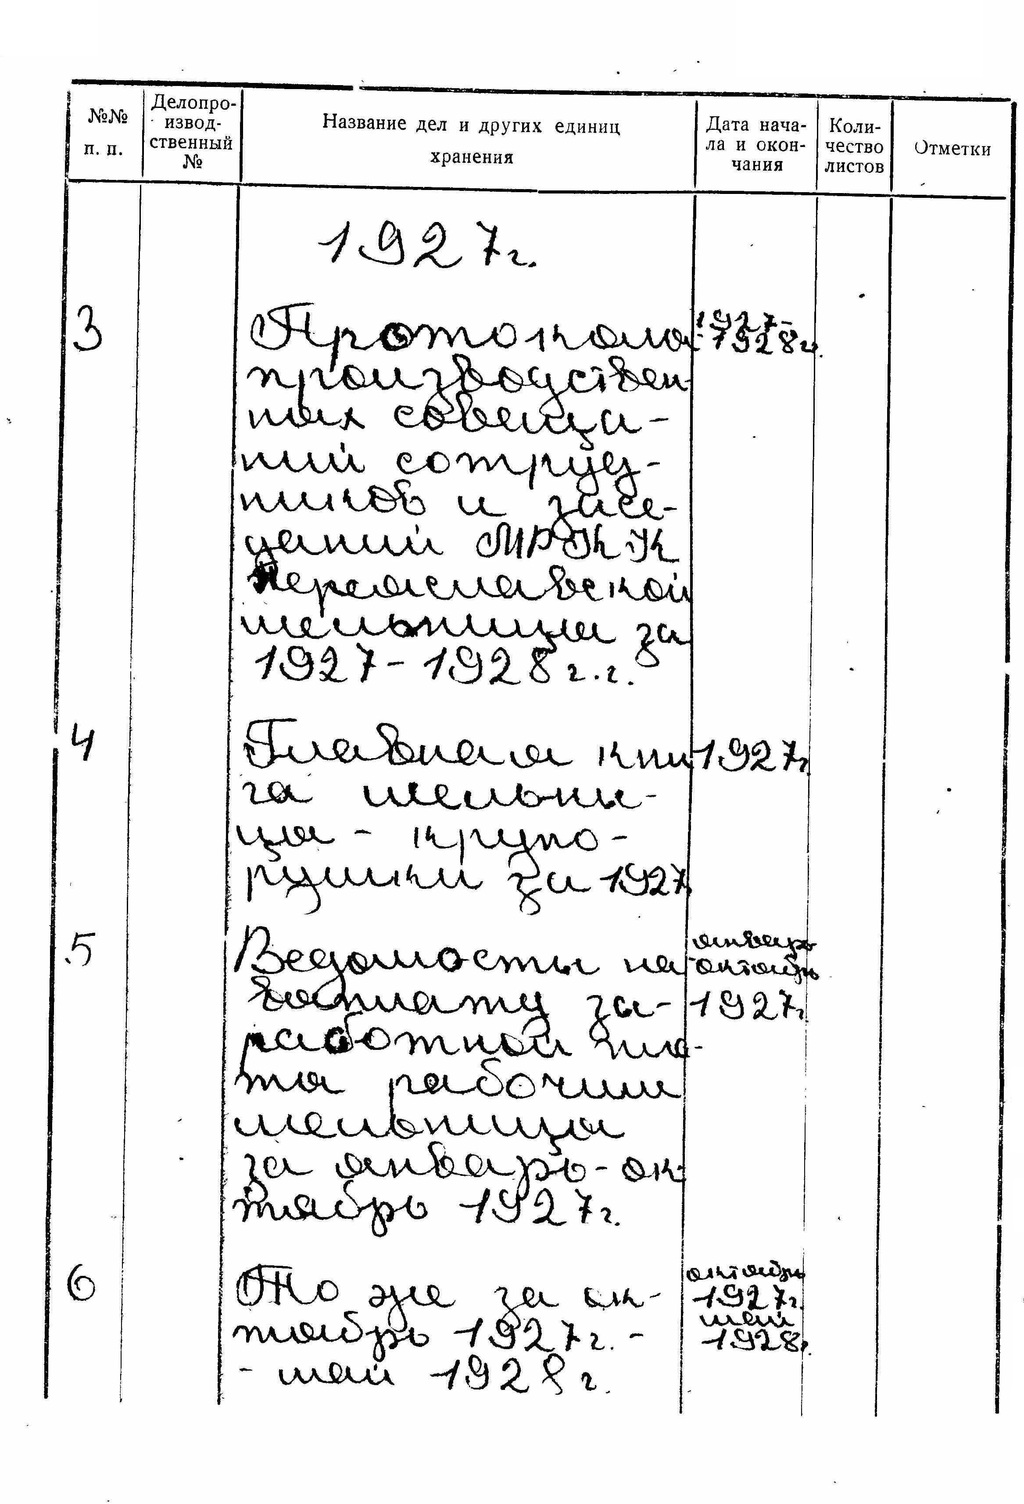 №№ п. п.
Делопро-
извод-
ственный
№
Название дел и других единиц
хранения
Дата нача-
ла и окон-
чания
Коли-
чество
листов
Отметки
1927г.
3
Протоколы
производствен-
ных совеща-
ний сотруд-
ников и засе-
даний МРКК
Переяславской
мельницы за
1927-1928 г.г.
1927-
-1928гг.
4
Главная кни
га мельни-
цы - крупо-
рушки за 1927
1927г.
5
Ведомости на
выплату за-
работной пла-
ты рабочим
мельницы
за январь-ок-
тябрь 1927г.
январь-
октябрь
1927г.
6
То же за ок-
тябрь 1927г. -
- май 1928г.
октябрь
1927г.
май
1928г.